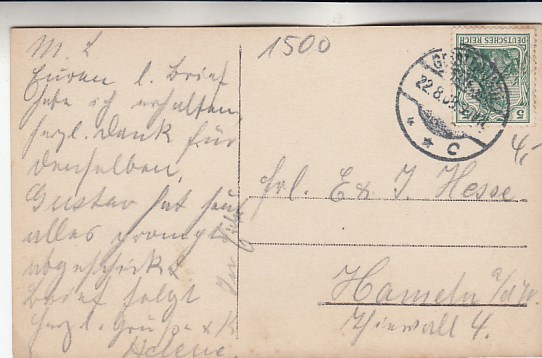 M. L
Euren l. Brief
habe ich erhalten,
herzl. Dank für
denselben,
Gustav hat heut
alles prompt
abgeschickt
Brief folgt
herzl. Grüße & K
Helene.
1500
DEUTSCHES REICH
5
22.8.0
C
4,-
Frl. E & J. Hesse
Hameln a/d W.
Thiewall 4.